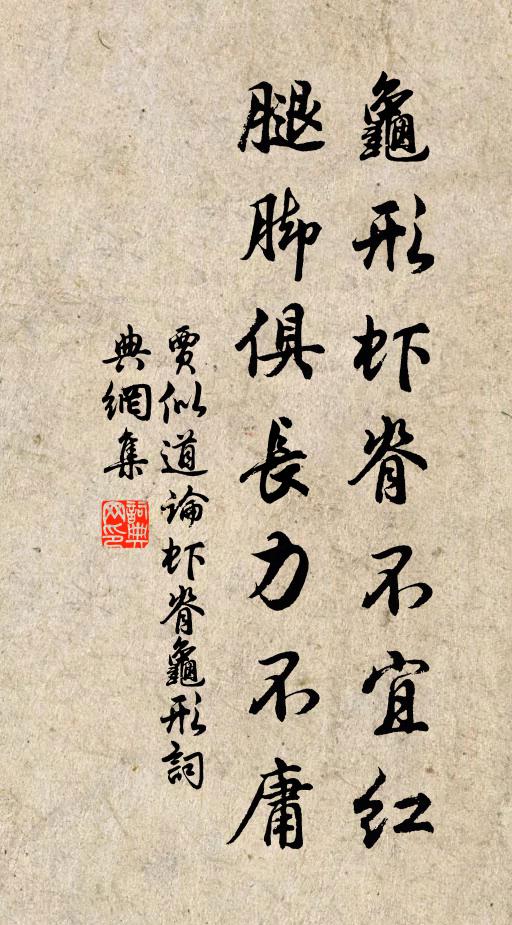 龜形虾脊不宜紅
腿脚俱長力不庸
賈似道論虾脊龜形詞
典網集
詞典
网印